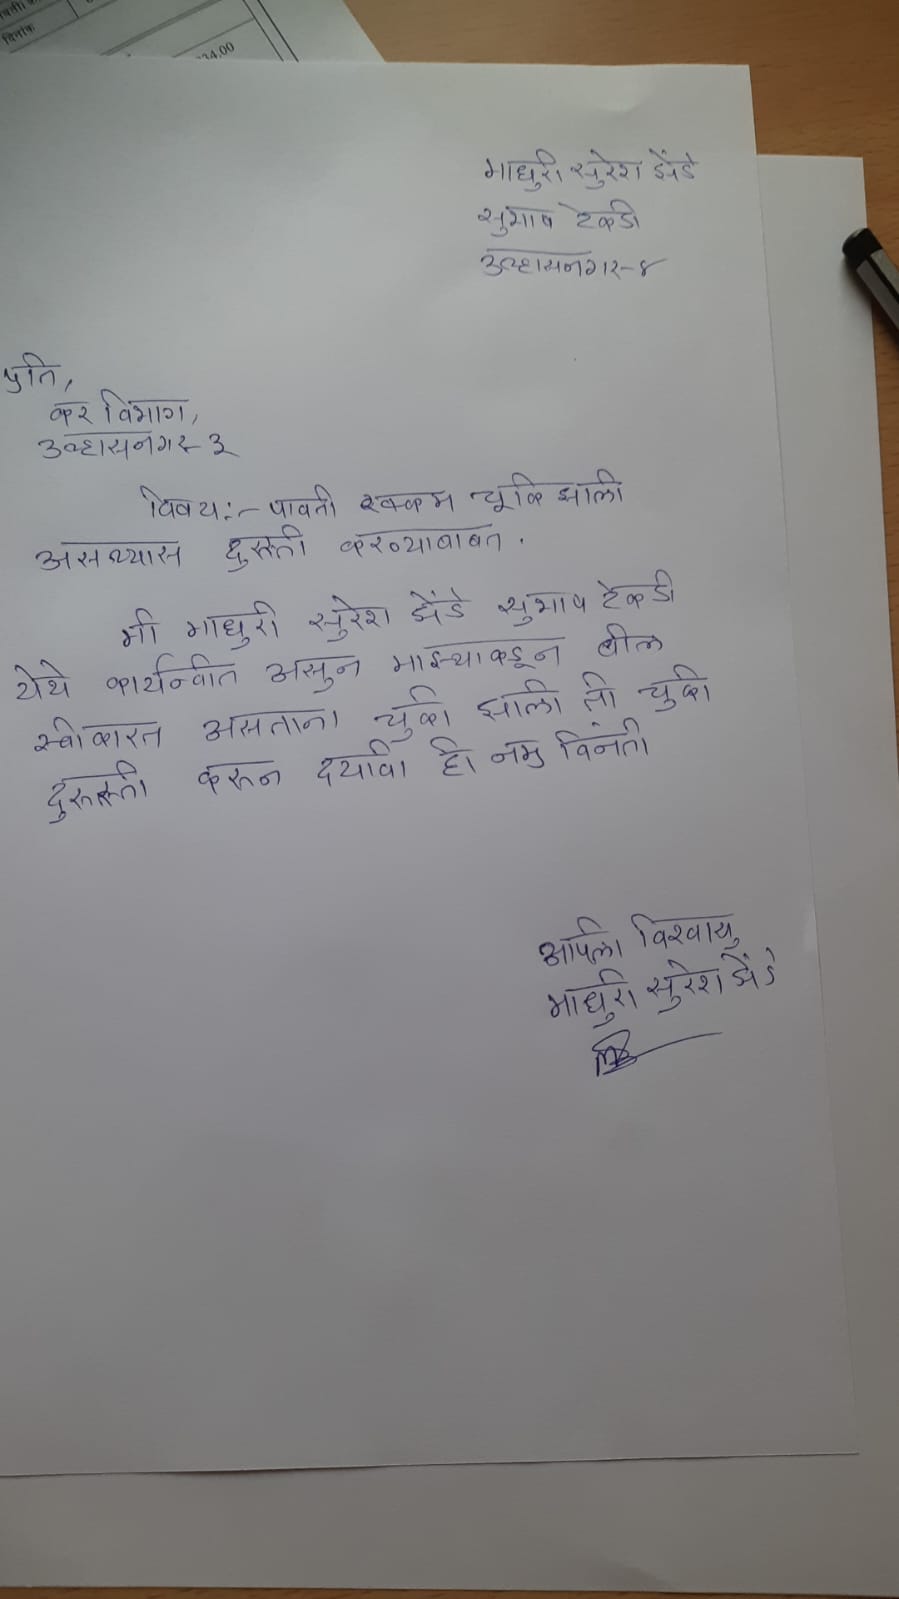 दिनांक
34.00
माधुरी सुरेश झेंडे
सुभाष टेकडी
उल्हासनगर-४
प्रति,
कर विभाग,
उल्हासनगर-३
विषय:- पावती रक्कम चूकि झाली
असल्यास दुरूस्ती करण्याबाबत.
मी माधुरी सुरेश झेंडे सुभाष टेकडी
येथे कार्यन्वीत असुन माझ्याकडून बील
स्वीकारत असताना चुकी झाली ती चुकी
दुरूस्ती करून दयावी ही नम्र विनंती
आपला विश्वासु
माधुरी सुरेश झेंडे